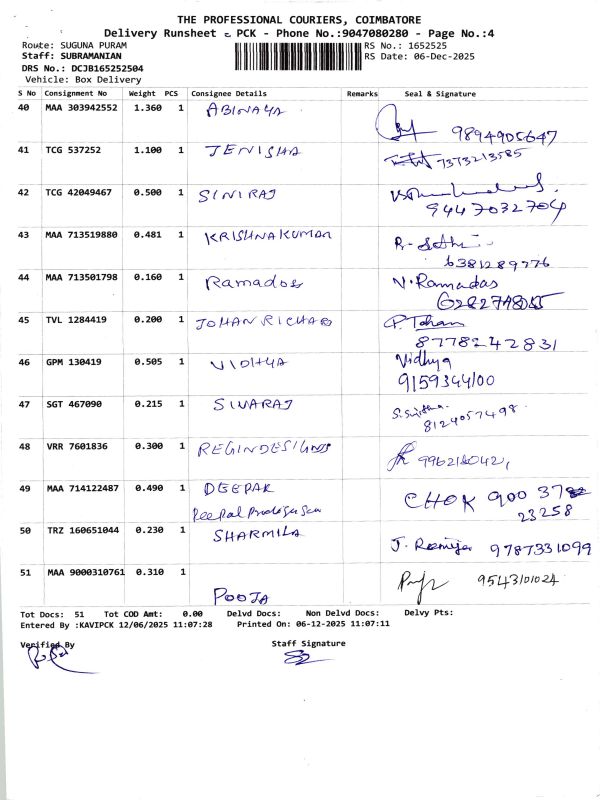 THE PROFESSIONAL COURIERS, COIMBATORE
Delivery Runsheet PCK - Phone No.:9047080280 - Page No.:4
Route: SUGUNA PURAM RS No.: 1652525
Staff: SUBRAMANIAN RS Date: 06-Dec-2025
DRS No.: DCJB165252504
Vehicle: Box Delivery
S No Consignment No Weight PCS Consignee Details Remarks Seal & Signature
40 MAA 303942552 1.360 1 ABINAYA
9894905647
41 TCG 537252 1.100 1 JENISHA
7373213585
42 TCG 42049467 0.500 1 SINIRAJ
9447032704
43 MAA 713519880 0.481 1 KRISHNAKUMAR
6381289776
44 MAA 713501798 0.160 1 Ramadoss N. Ramadas
45 TVL 1284419 0.200 1 JOHAN RICHARD
8778242831
46 GPM 130419 0.505 1 VIDHYA Vidhya
9159344100
47 SGT 467090 0.215 1 SIVARAJ
8124057498
48 VRR 7601836 0.300 1 REGINDESIGNS
49 MAA 714122487 0.490 1 DEEPAK CHOK 900 37
23258
50 TRZ 160651044 0.230 1 SHARMILA 9787331099
51 MAA 9000310761 0.310 1 9543101024
POOJA
Tot Docs: 51 Tot COD Amt: 0.00 Delvd Docs: Non Delvd Docs: Delvy Pts:
Entered By :KAVIPCK 12/06/2025 11:07:28 Printed On: 06-12-2025 11:07:11
Verified By Staff Signature